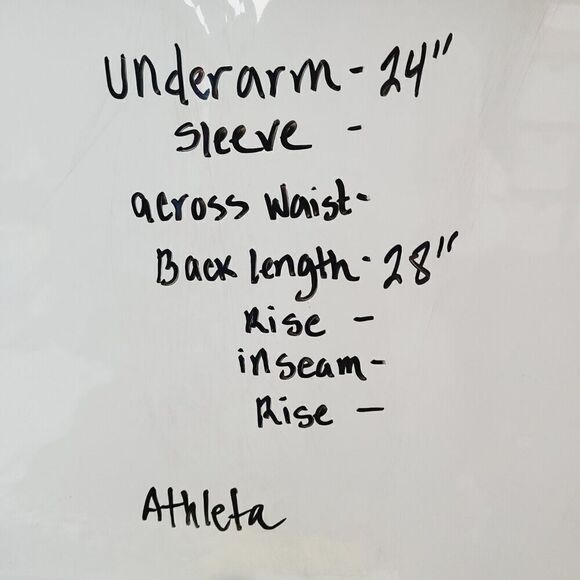 Underarm - 24"
Sleeve -
across Waist-
Back length - 28"
Rise -
inseam -
Rise -
Athleta